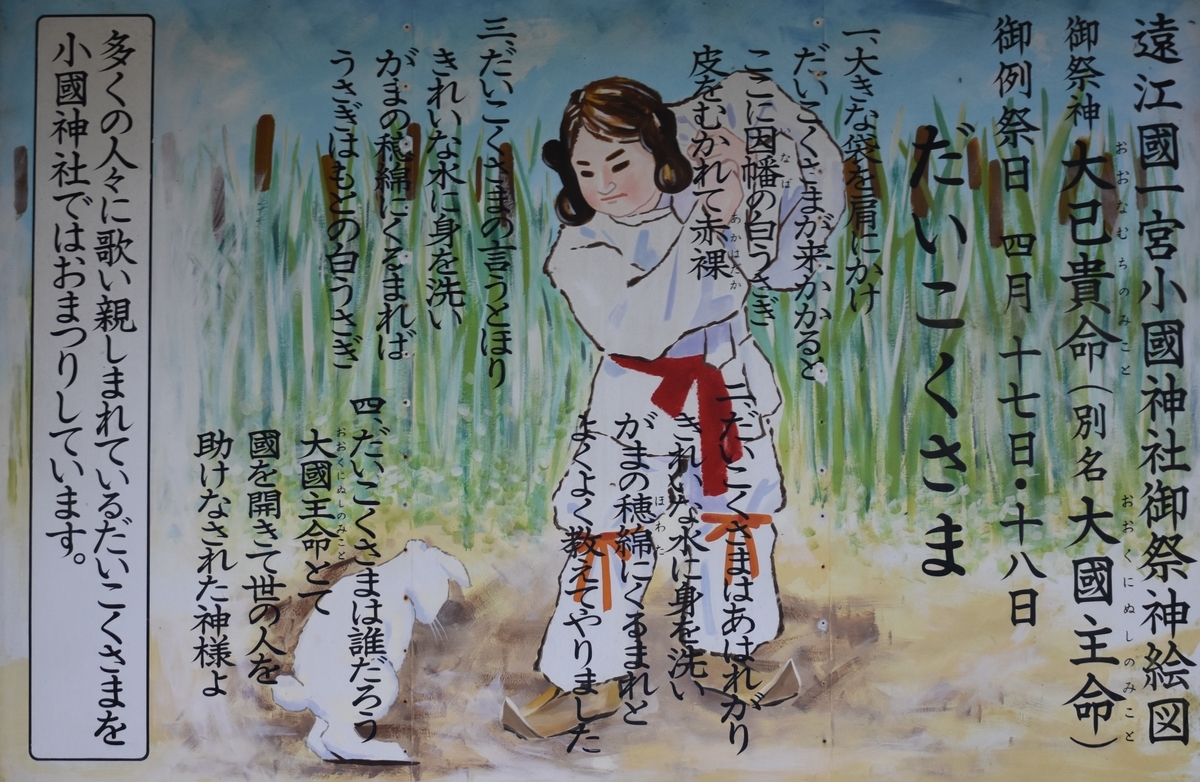 遠江國一宮小國神社御祭神絵図
御祭神 大己貴命(別名 大國主命)
おおなむちのみこと
おおくにぬしのみこと
御例祭日 四月 十七日・十八日
だいこくさま
一、大きな袋を肩にかけ
だいこくさまが来かかると
ここに因幡の白うさぎ
なば
皮をむかれて赤裸
あかはだか
二、だいこくさまはあはれがり
きれいな水に身を洗い
がまの穂綿にくるまれと
ほわた
よくよく教えてやりました
三、だいこくさまの言うとほり
きれいな水に身を洗い
がまの穂綿にくるまれば
うさぎはもとの白うさぎ
四、だいこくさまは誰だろう
大國主命とて
おおくにぬしのみこと
國を開きて世の人を
助けなされた神様よ
多くの人々に歌い親しまれているだいこくさまを
小國神社ではおまつりしています。